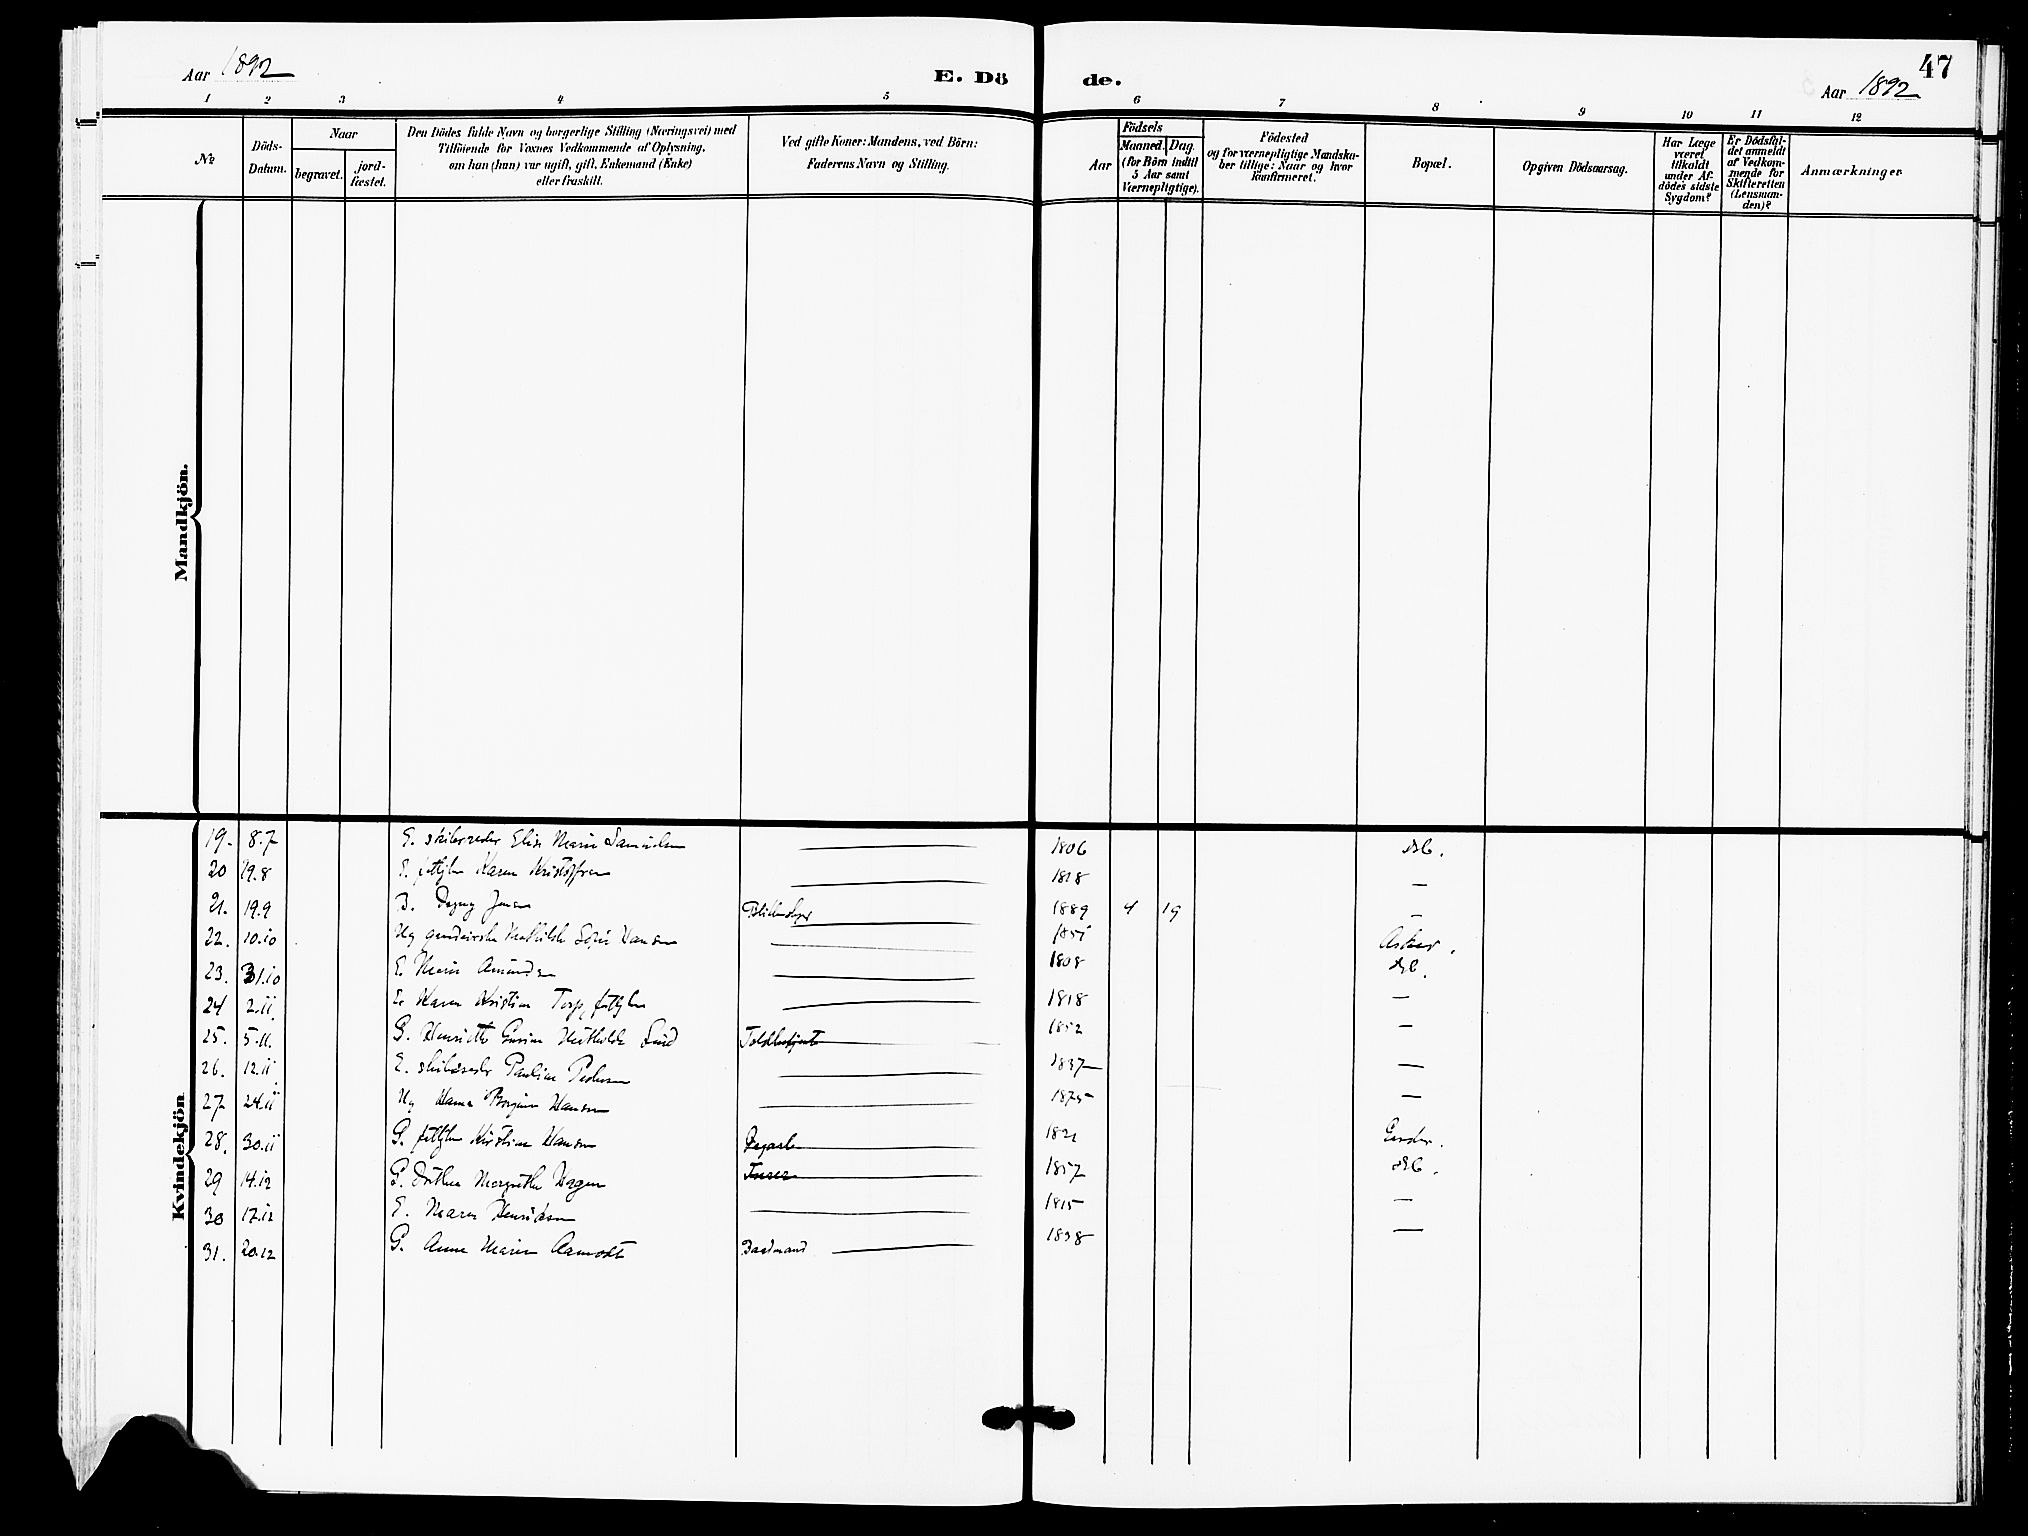 Aar 1892
E. Dö de.
47
Aar 1892
1 2 3 4 5 6 7 8 9 10 11 12
No
Döds-
Datum.
Naar
begravet.
jord-
fæstet.
Den Dödes fulde Navn og borgerlige Stilling (Næringsvei) med
Tilföiende for Voxnes Vedkommende af Oplysning,
om han (hun) var ugift, gift, Enkemand (Enke)
eller fraskilt.
Ved gifte Koner: Mandens, ved Börn:
Faderens Navn og Stilling.
Aar
Födsels
Maaned. Dag.
(for Börn indtil
5 Aar samt
Værnepligtige).
Födested
og for værnepligtige Mandska-
ber tillige: Naar og hvor
konfirmeret.
Bopæl.
Opgiven Dödsaarsag.
Har Læge
været
tilkaldt
under Af-
dödes sidste
Sygdom?
Er Dödsfal-
det anmeldt
af Vedkom-
mende for
Skifteretten
(Lensman-
den)?
Anmærkninger
Mandkjön.
Kvindekjön
19. 8.7 E. Elise Marie Samuelsen — 1806
20 19.8 E. Karen Kristoffersen — 1818 —
21. 19.9 B. Dagny Jensen 1889 4 19 —
22. 10.10 Ug Mathilde Sofie Hansen — 1851 Asker.
23. 31.10 E. Marie Amundsen — 1808
24 2.11. E. Karen Kristine Torp, — 1818 —
25. 5.11. G. Henriette Gurine Mathilde Lund Toldbetjent 1852 —
26. 12.11 E. Pauline Pedersen — 1837 —
27 24.11 Ug Hanna Hansen — 1875 —
28. 30.11 G. Kirstine Hansen 1821
29 14.12 G. Dorthea Margrethe Hagen 1857
30 17.12 E. Maren Henriksen — 1815 —
31. 20.12 G. Anne Marie Aamodt Baadmand — 1838 —